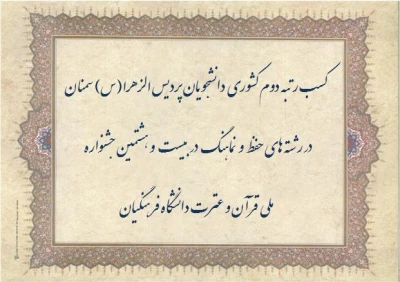 کسب رتبه دوم کشوری دانشجویان پردیس الزهرا (س) سمنان
در رشته های حفظ و نماهنگ در بیست و هشتمین جشنواره
ملی قرآن و عترت دانشگاه فرهنگیان